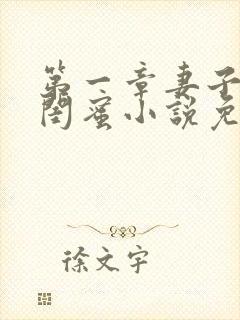 第一章妻子
闺蜜小说免
徐文宇